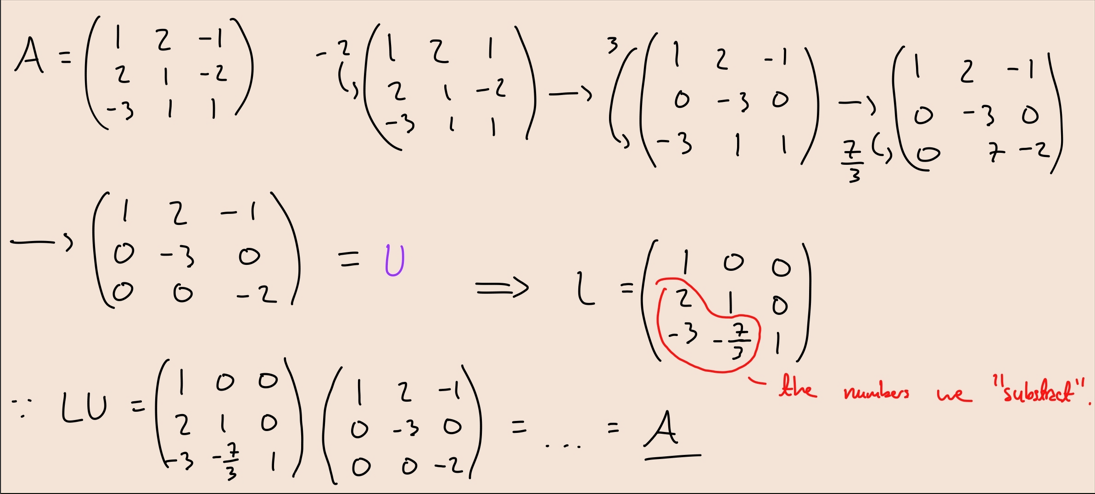 A = ( 1 2 -1 ; 2 1 -2 ; -3 1 1 )   -2 ( 1 2 1 ; 2 1 -2 ; -3 1 1 ) → 3 ( 1 2 -1 ; 0 -3 0 ; -3 1 1 ) → 7/3 ( 1 2 -1 ; 0 -3 0 ; 0 7 -2 )
→ ( 1 2 -1 ; 0 -3 0 ; 0 0 -2 ) = U ⟹ L = ( 1 0 0 ; 2 1 0 ; -3 -7/3 1 )
the numbers we "substact".
∵ LU = ( 1 0 0 ; 2 1 0 ; -3 -7/3 1 ) ( 1 2 -1 ; 0 -3 0 ; 0 0 -2 ) = ... = A